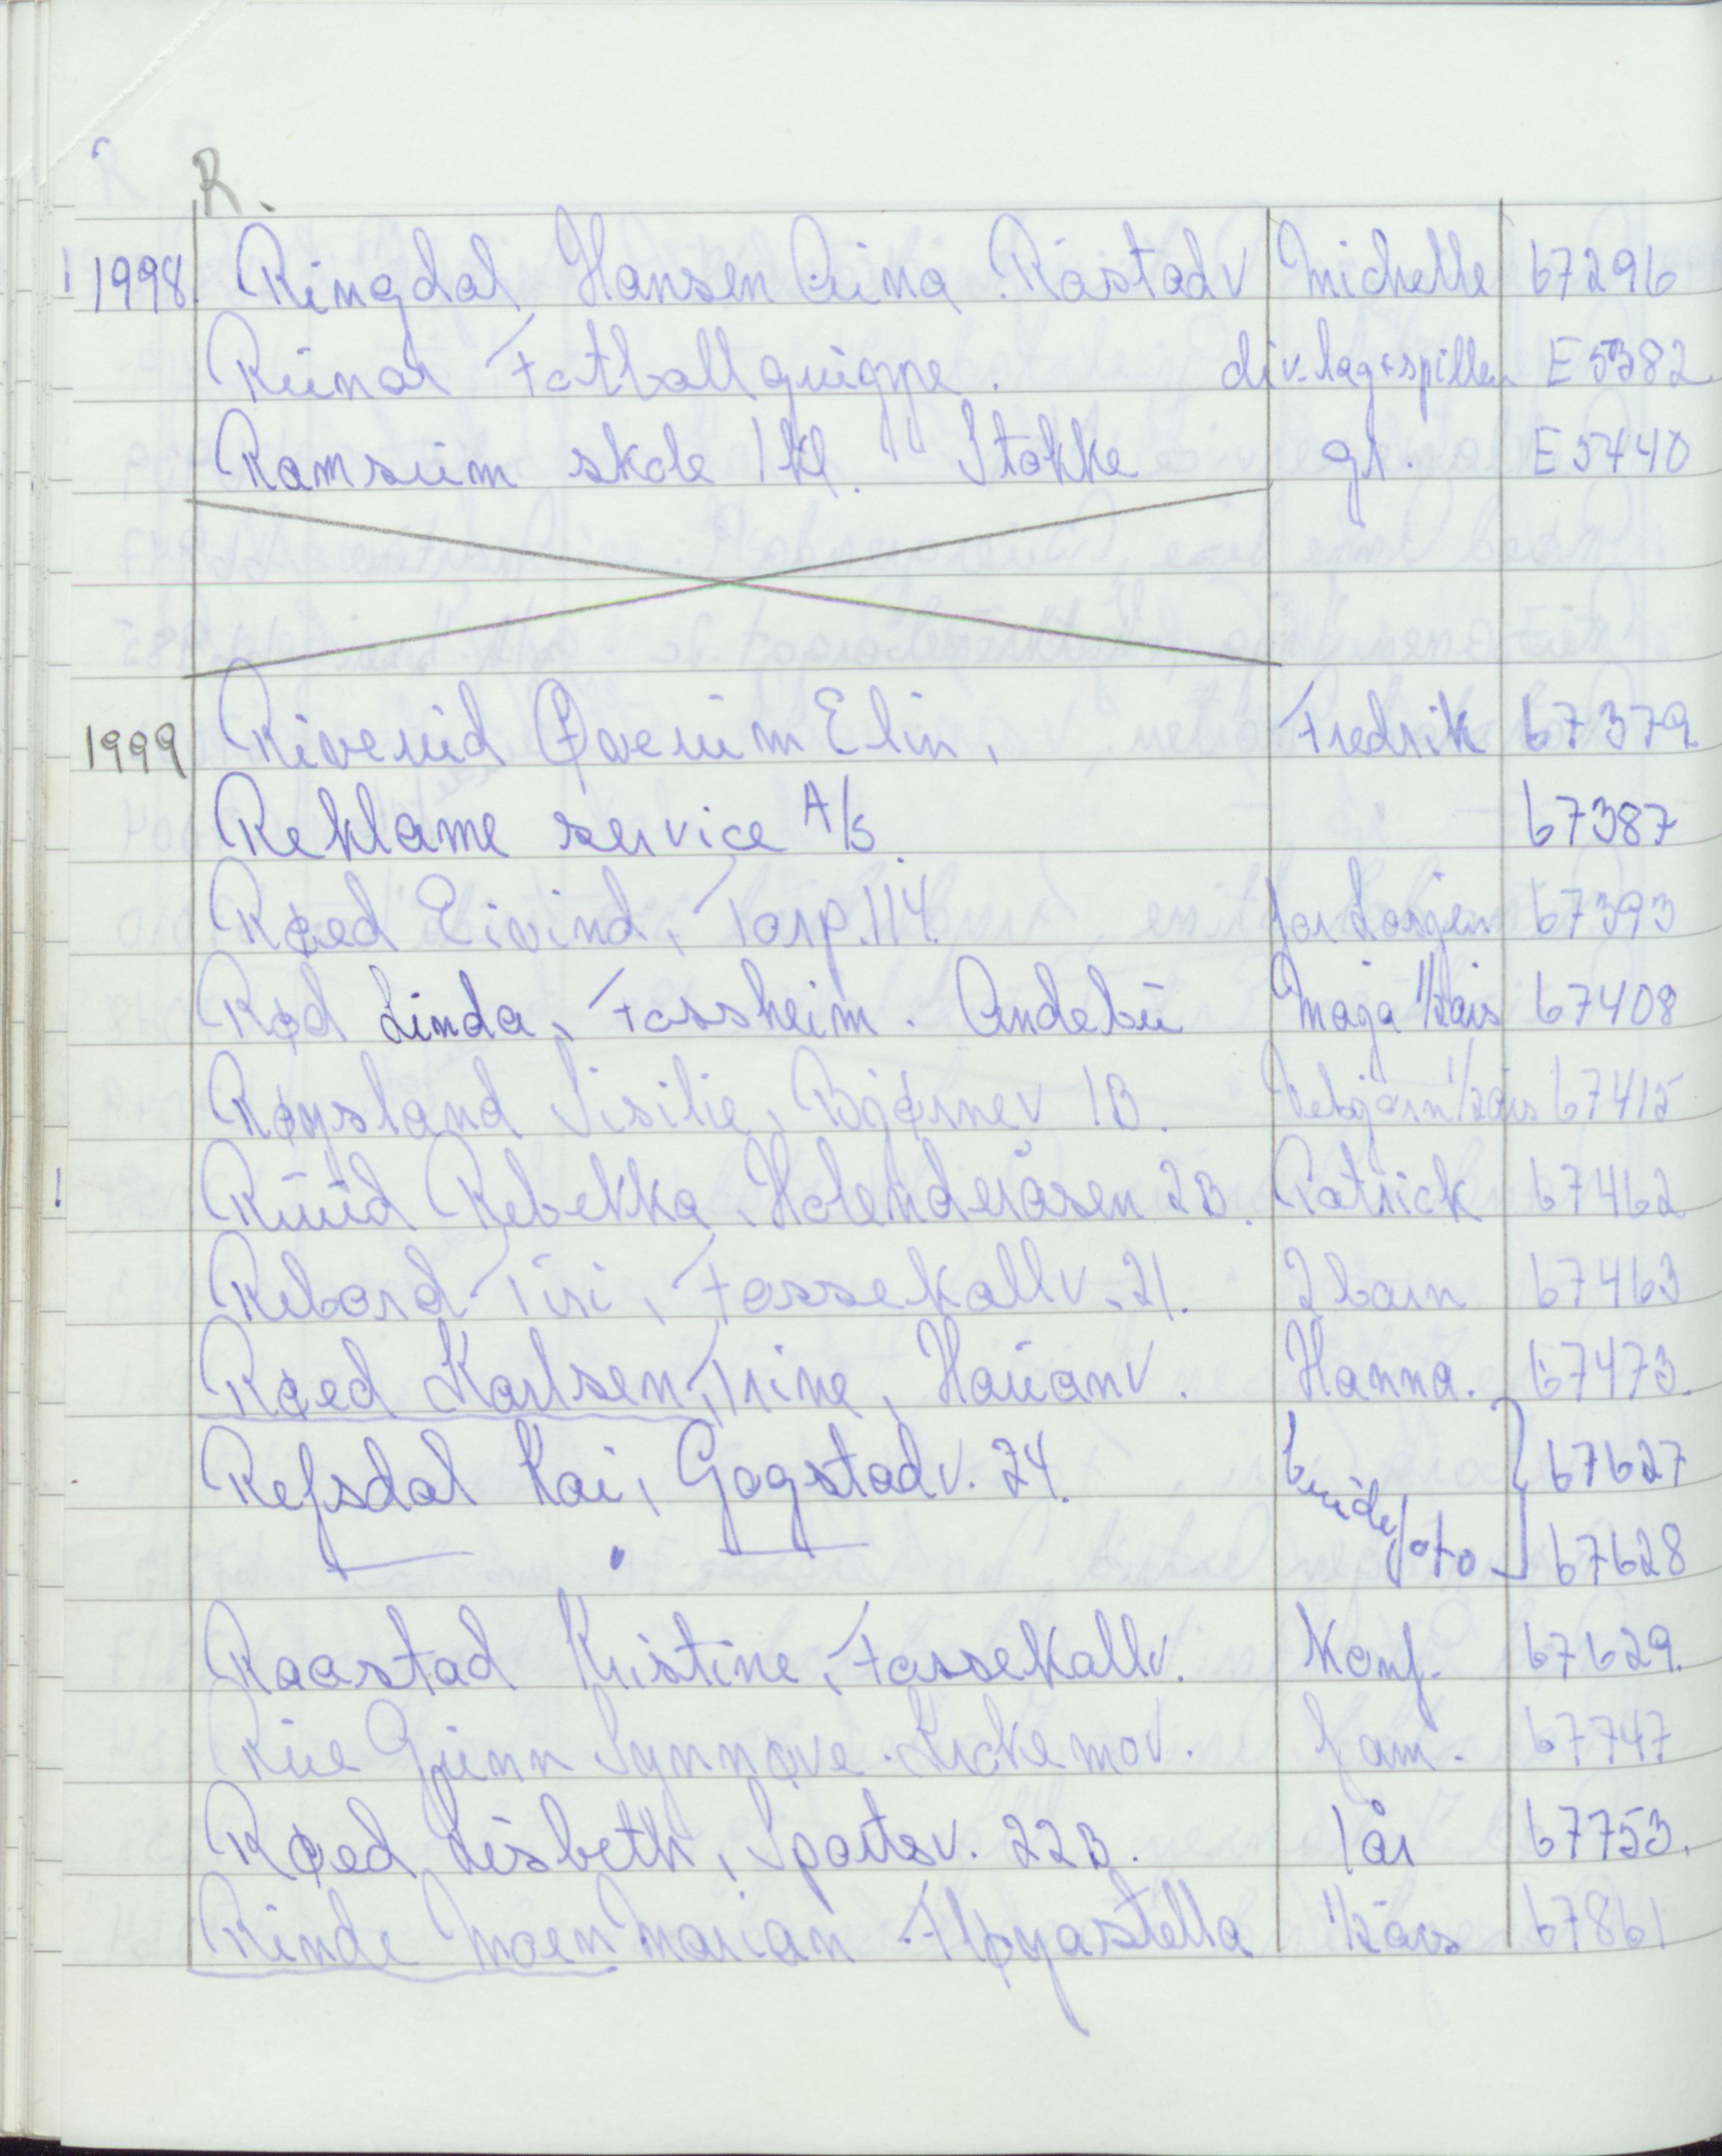 R.
1998 Ringdal Hansen Anina. Råstadv Michelle 67296
Runar Fotballgruppe. div. lag + spillere E 5382
Ramsum skole 1 kl. Stokke gr. E 5440
1999 Riverud Elin, Fredrik 67379.
Reklame service A/S. 67387
Røed Eivind, Torp. 114. for Jørgen 67393
Rød Linda, Fossheim. Andebu Maja 1/2 års 67408
Røysland Sisilie, Bjørnev 1B. Vebjørn 1/2 års 67415
! Ruud Rebekka, Holenderåsen 2B. Patrick 67462
Rebord Turi, Fossekallv. 21. 2 barn 67463
Røed Karlsen, Trine, Hauanv. Hanna. 67473.
Refsdal Kai, Gogstadv. 24. brude 67627
— " — foto 67628
Raastad Kristine, Fossekallv. Konf. 67629.
Rue Gunn Synnøve. Kirkemov. fam. 67747
Røed Lisbeth, Sportsv. 22B. 1 år 67753.
Rinde Moen Marian Fløyastella 1/2 års 67861